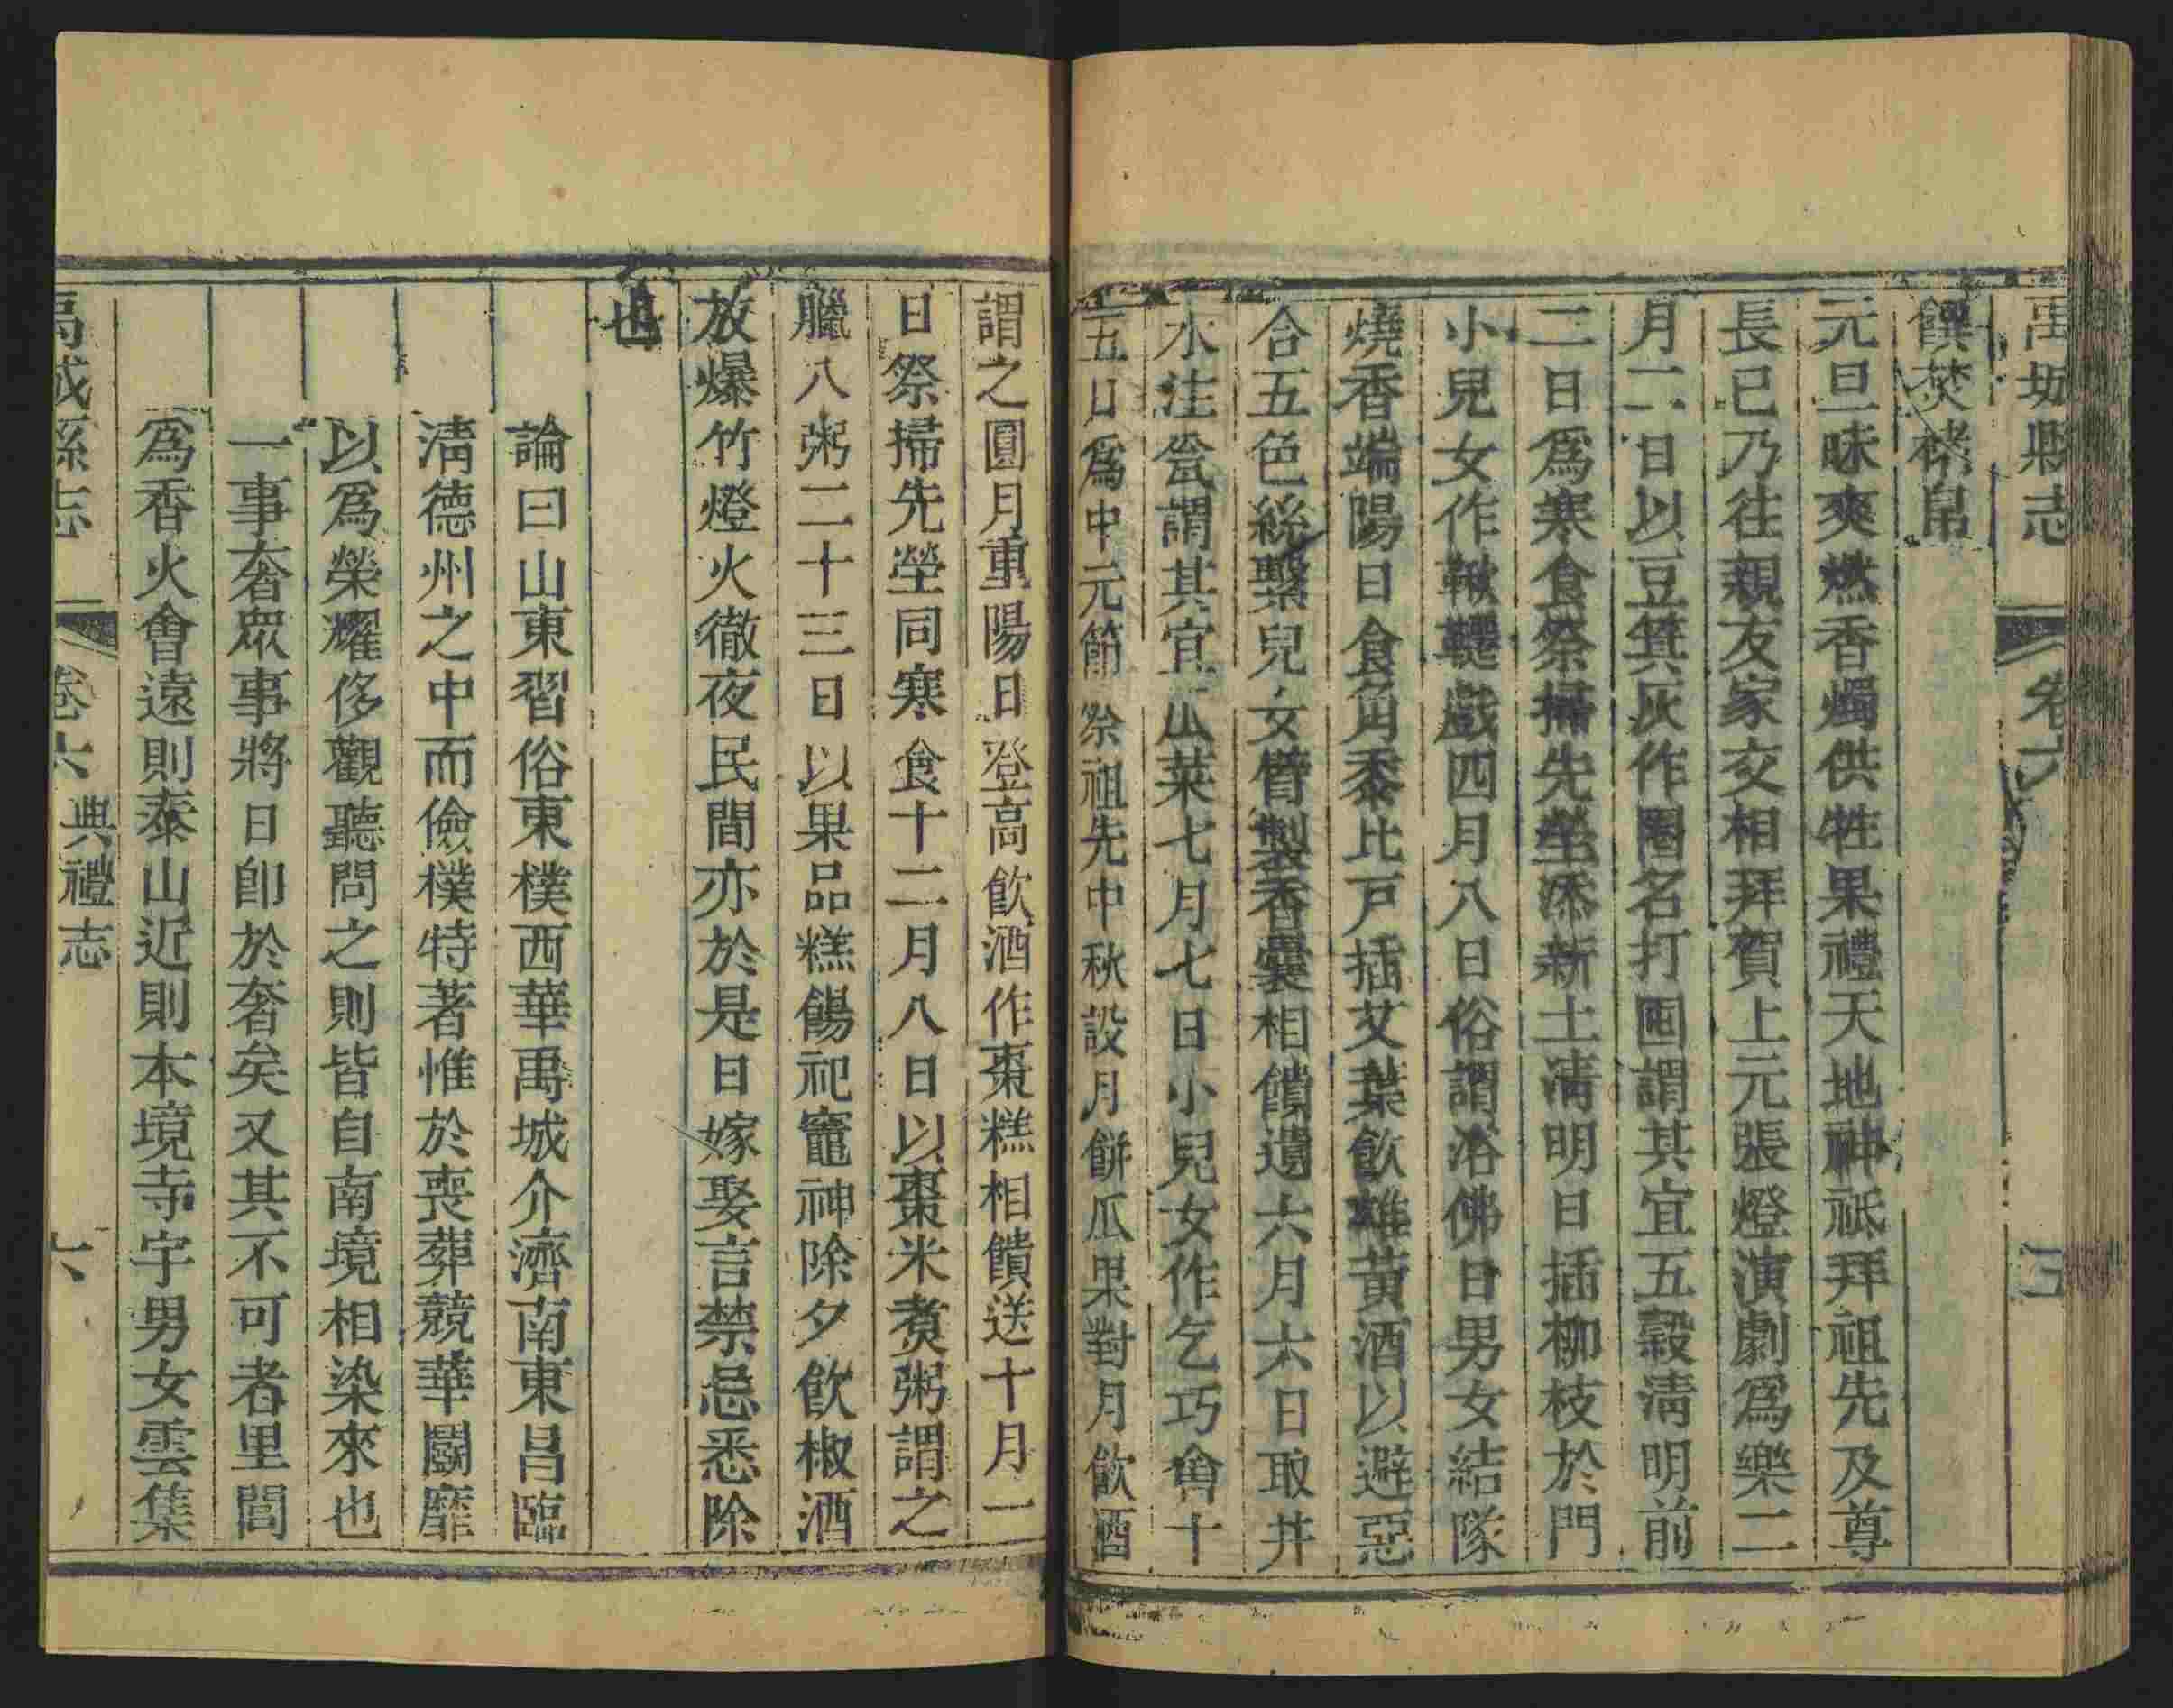 禹城縣志 卷六 五
饌焚褚帛
元旦昧爽燃香燭供牲果禮天地神祗拜祖先及尊
長已乃往親友家交相拜賀上元張燈演劇爲樂二
月二日以豆箕灰作圈名打囤謂其宜五穀淸明前
二日爲寒食祭掃先塋添新土淸明日插柳枝於門
小兒女作鞦韆戲四月八日俗謂浴佛日男女結隊
燒香端陽日食角黍比戸插艾葉飮雄黃酒以避惡
合五色絲繫兒女臂製香囊相饋遺六月六日取井
水注瓮謂其宜瓜菜七月七日小兒女作乞巧會十
五日爲中元節祭祖先中秋設月餅瓜果對月飮酒
謂之圓月重陽日登高飮酒作棗糕相饋送十月一
日祭掃先塋同寒食十二月八日以棗米煑粥謂之
臘八粥二十三日以果品糕餳祀竈神除夕飮椒酒
放爆竹燈火徹夜民間亦於是日嫁娶言禁忌悉除
也
論曰山東習俗東樸西華禹城介濟南東昌臨
淸德州之中而儉樸特著惟於喪葬競華鬬靡
以爲榮耀侈觀聽問之則皆自南境相染來也
一事奢眾事將日卽於奢矣又其不可者里閭
爲香火會遠則泰山近則本境寺宇男女雲集
禹城縣志 卷六 典禮志 六